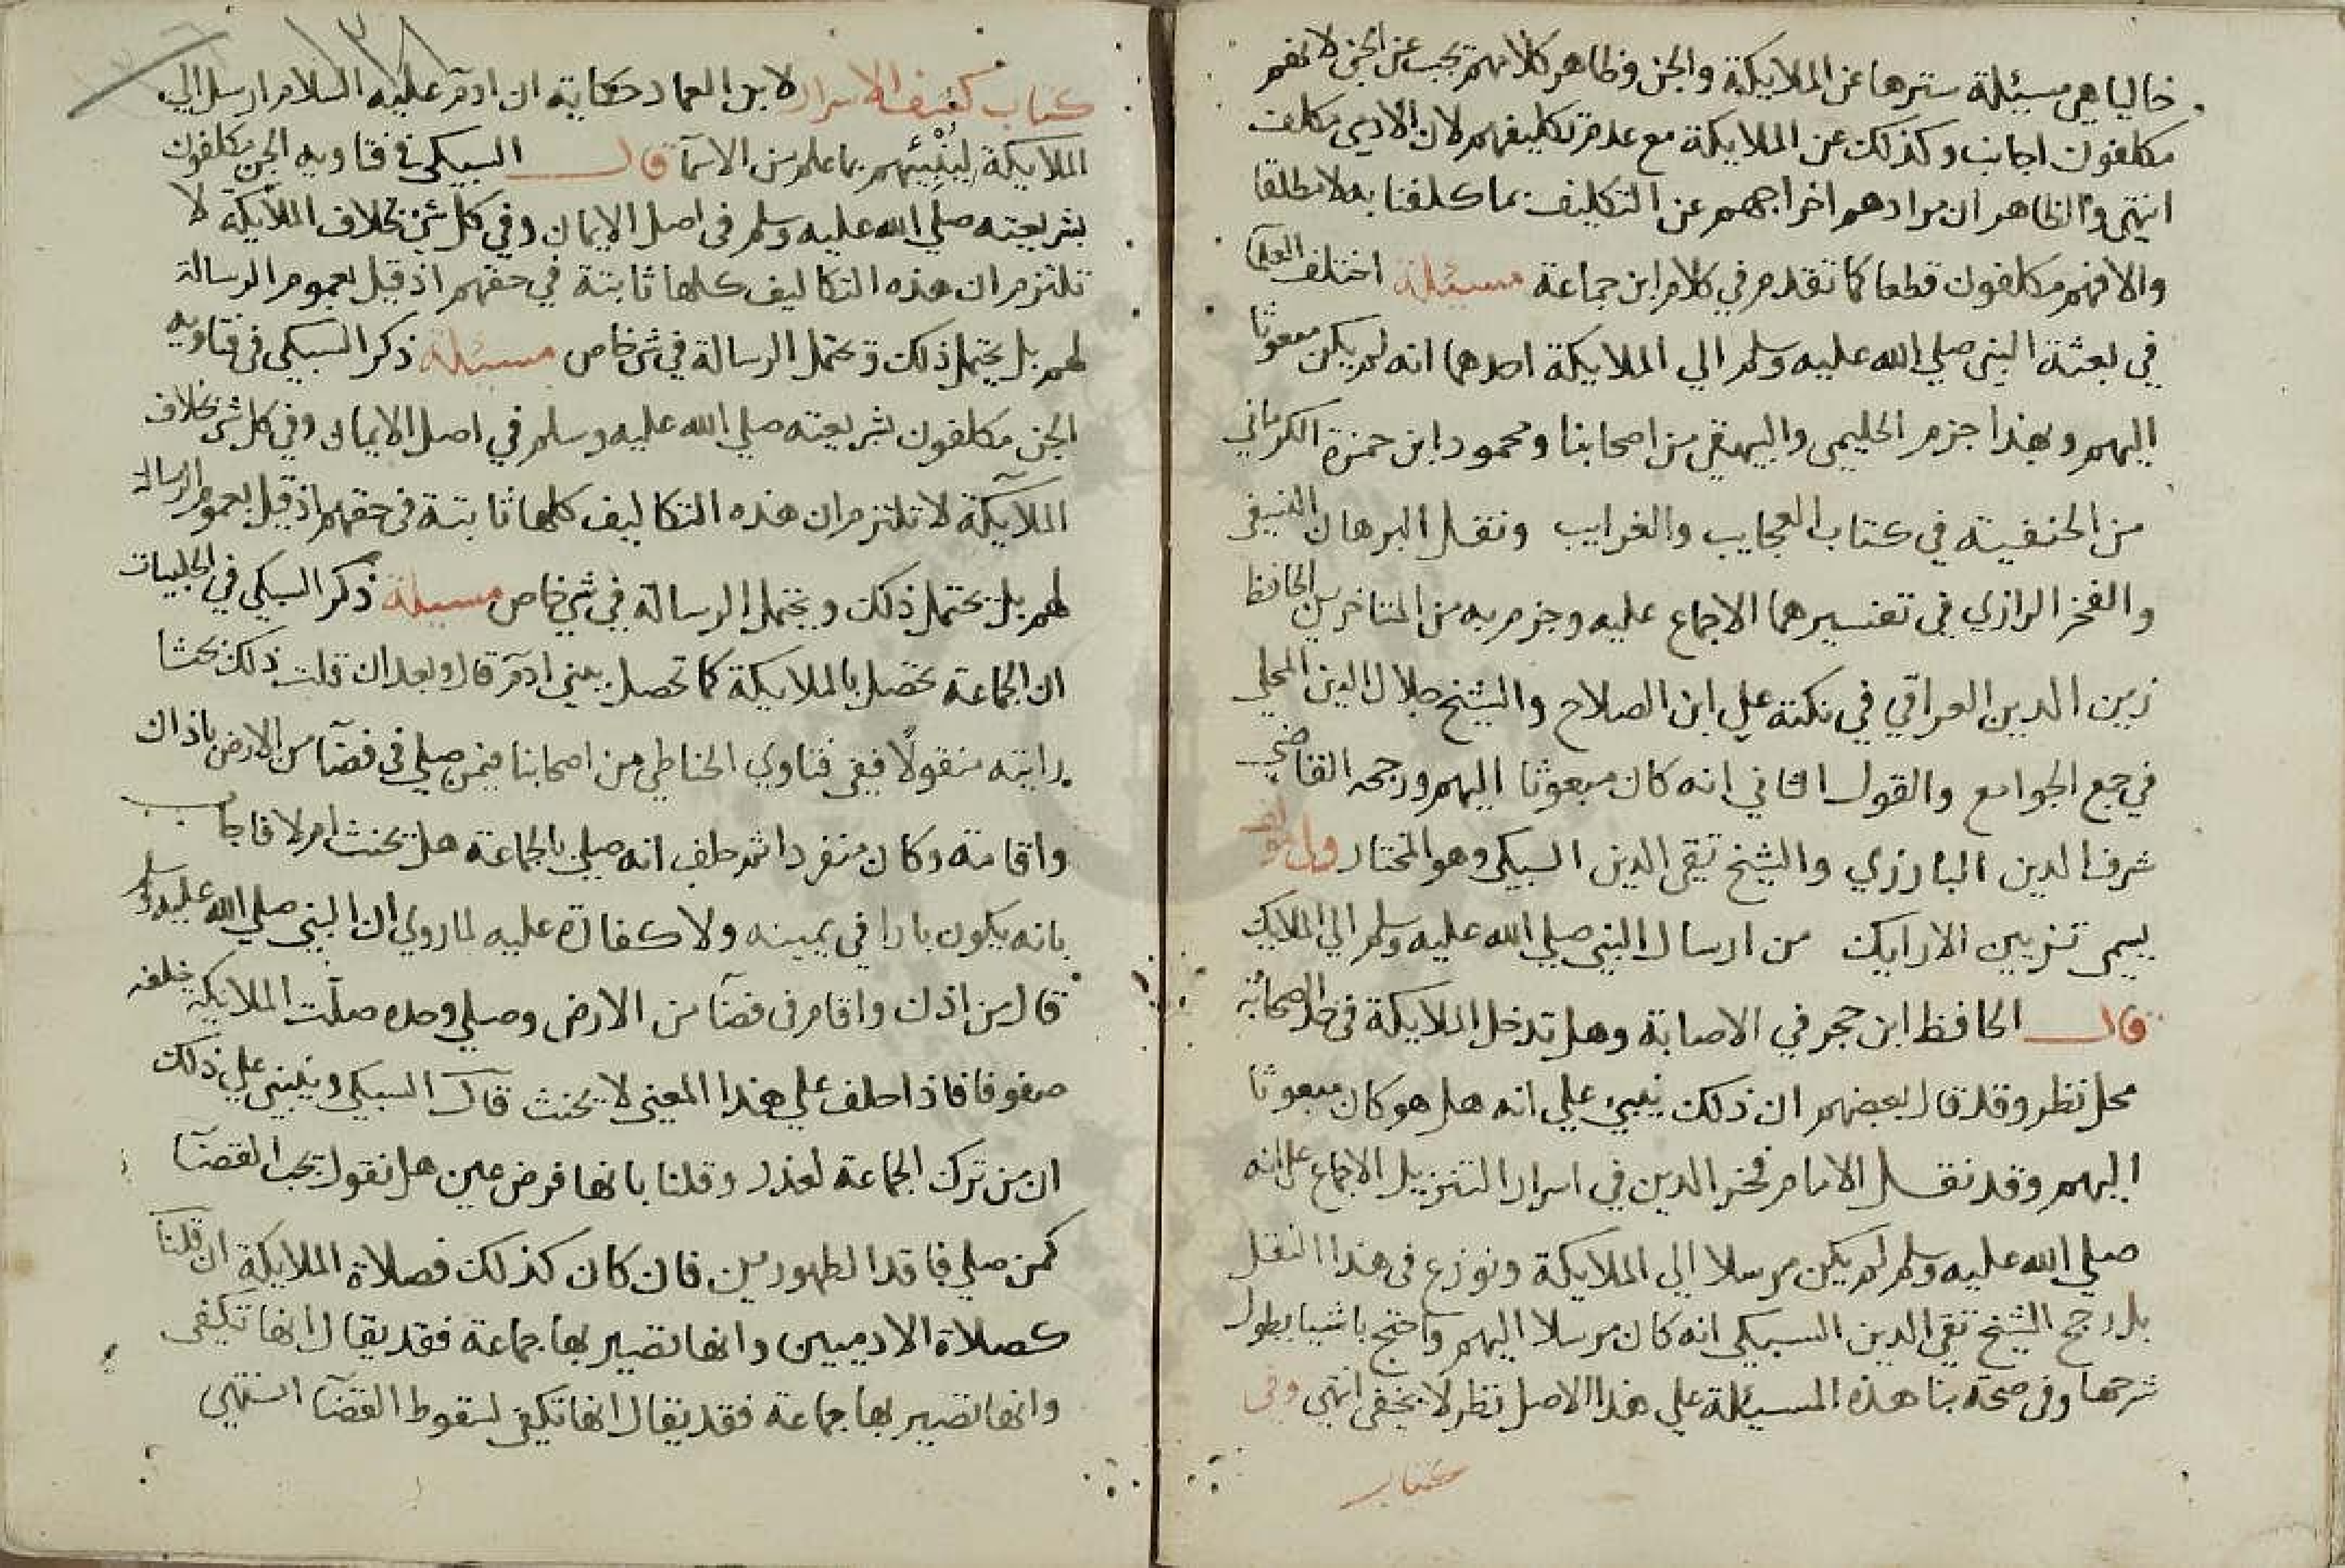 خاليا هي مسئلة سترها عن الملايكة والجن وظاهر كلامهم يجب عن الجن لانهم
مكلفون اجانب وكذلك عن الملايكة مع عدم تكليفهم لان الادمي مكلف
انتهى والظاهر ان مرادهم اخراجهم عن التكليف بما كلفنا به لا مطلقا
والا فهم مكلفون قطعا كما تقدم في كلام ابن جماعة مسئلة اختلف العلما
في بعثة النبي صلي الله عليه وسلم الي الملايكة احدهما انه لم يكن مبعوثا
اليهم وبهذا جزم الحليمي والبيهقي من اصحابنا ومحمود ابن حمزة الكرماني
من الحنفية في كتاب العجايب والغرايب ونقل البرهان النسفي
والفخر الرازي في تفسيرهما الاجماع عليه وجزم به من المتاخرين الحافظ
زين الدين العراقي في نكته علي ابن الصلاح والشيخ جلال الدين المحلي
في جمع الجوامع والقول الثاني انه كان مبعوثا اليهم ورجحه القاضي
شرف الدين البارزي والشيخ تقي الدين السبكي وهو المختار ولي
يسمى تزيين الارايك من ارسال النبي صلي الله عليه وسلم الي الملايك
قال الحافظ ابن حجر في الاصابة وهل تدخل الملايكة في حد الصحابة
محل نظر وقد قال بعضهم ان ذلك يبني علي انه هل هو كان مبعوثا
اليهم وقد نقل الامام فخر الدين في اسرار التنزيل الاجماع علي انه
صلي الله عليه وسلم لم يكن مرسلا الي الملايكة ونوزع في هذا النقل
بل رجح الشيخ تقي الدين السبكي انه كان مرسلا اليهم واحتج باشيا يطول
شرحها وفي صحة بنا هذه المسئلة علي هذا الاصل نظر لا يخفى انتهى وفي
كتاب
كتاب كشف الاسرار لابن العماد حكاية ان ادم عليه السلام ارسل الي
الملايكة لينبئهم بما علم من الاسمآ قال السبكي في فتاويه الجن مكلفون
بشريعته صلي الله عليه وسلم في اصل الايمان وفي كل شي بخلاف الملايكة لا
تلتزم ان هذه التكاليف كلها ثابتة في حقهم اذ قيل بعموم الرسالة
لهم بل يحتمل ذلك ويحتمل الرسالة في شي خاص مسئلة ذكر السبكي في فتاويه
الجن مكلفون بشريعته صلي الله عليه وسلم في اصل الايمان وفي كل شي بخلاف
الملايكة لا تلتزم ان هذه التكاليف كلها ثابتة في حقهم اذ قيل بعموم الرسالة
لهم بل يحتمل ذلك ويحتمل الرسالة في شي خاص مسيلة ذكر السبكي في الحلبيات
ان الجماعة تحصل بالملايكة كما تحصل ببني ادم قال وبعد ان قلت ذلك بحثا
رايته منقولًا ففي فتاوي الحناطي من اصحابنا فيمن صلي في فضآ من الارض باذان
واقامة وكان منفردا ثم حلف انه صلي بالجماعة هل يحنث ام لا فاجاب
بانه يكون بارا في يمينه ولا كفارة عليه لما روي ان النبي صلي الله عليه وسلم
قال من اذن واقام في فضآ من الارض وصلي وحده صلت الملايكة خلفه
صفوفا فاذا حلف علي هذا المعنى لا يحنث قال السبكي وينبني علي ذلك
ان من ترك الجماعة لعذر وقلنا بانها فرض عين هل نقول يجب القضآ
كمن صلي فاقد الطهورين فان كان كذلك فصلاة الملايكة ان قلنا
كصلاة الادميين وانها تصير بها جماعة فقد يقال انها تكفي
وانها تصير بها جماعة فقد يقال انها تكفي لسقوط القضآ انتهي